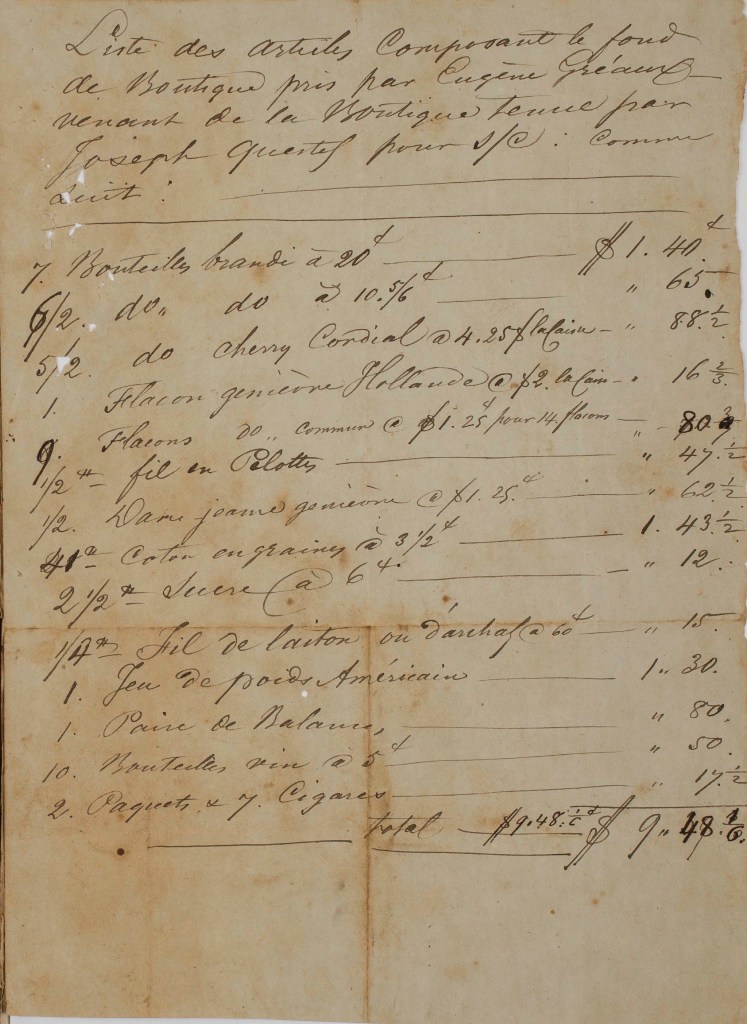 Liste des articles Composant le fond
de Boutique pris par Eugène Gréaux
venant de la Boutique tenue par
Joseph Questel pour s/C : comme
suit :
7. Bouteilles brandi à 20 ¢ $ 1. 40. ¢
6/2. do " do à 10. 5/6 ¢ " 65.
5/2. do cherry Cordial @ 4.25 $ la Caisse - " 88. 1/2
1. Flacon genièvre Hollande @ $2. la Cais - " 16 2/3.
9. Flacons do " commun @ $1. 25 ¢ pour 14. flacons " 80
1/2 # fil en Pelottes " 47. 1/2
1/2. Dame jeanne genièvre @ $1. 25. ¢ " 62. 1/2
41 # Coton en graines à 3 1/2 ¢ 1. 43. 1/2
2 1/2 # Sucre à 6 ¢. " 12.
1/4 # Fil de laiton ou d'archal @ 60 ¢ " 15.
1. Jeu de poids Américain 1 " 30.
1. Paire de Balances " 80.
10. Bouteilles vin à 5 ¢ " 50.
2. Paquets & 7. Cigares " 17. 1/2
total $9.48. 1/6 ¢ $ 9 " 48. 1/6.